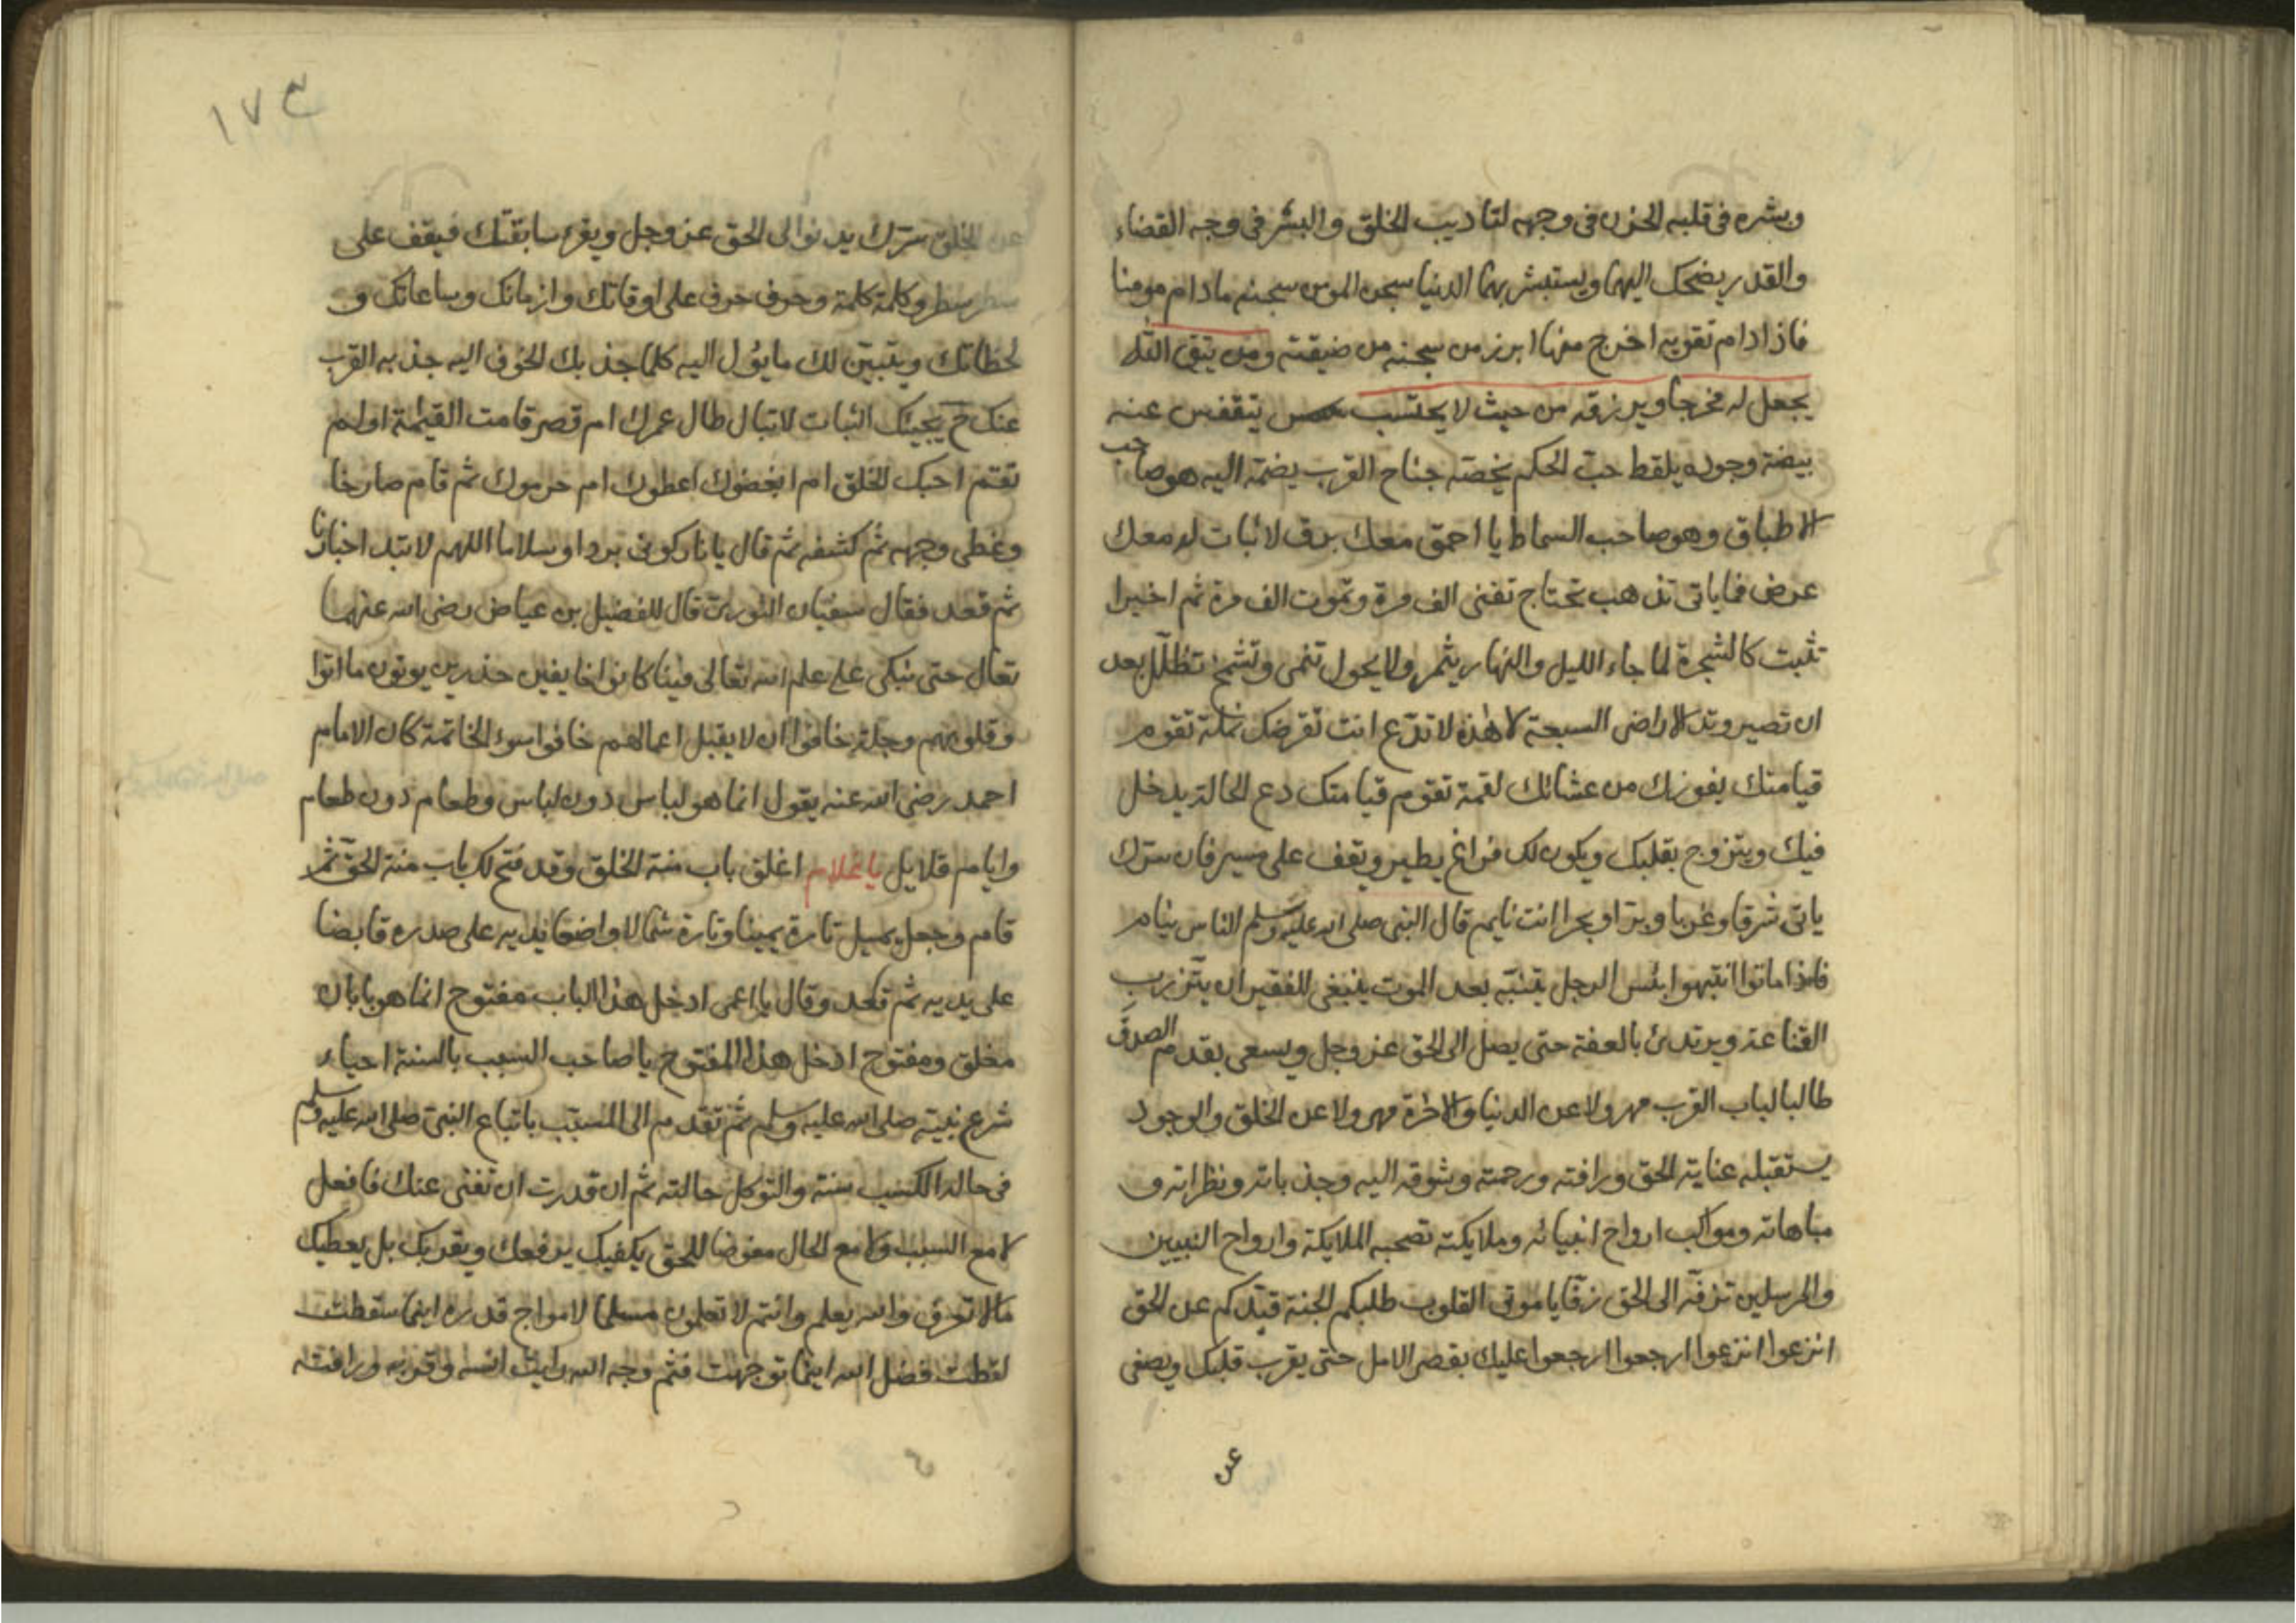 وبشره في قلبه الحزن في وجهه لتاديب الخلق والبشر في وجه القضاء
والقدر يضحك اليهما ويستبشر بهما الدنيا سجن المومن سجنه مادام مومنا
فاذا دام تقويه اخرج منها ابرز من سجنه من ضيقته ومن يتق الله
يجعل له مخرجا ويرزقه من حيث لا يحتسب يتقفس عنه
بيضة وجوده يلقط حب الحكم يخصّه جناح القرب يضمّه اليه هو صاحب
الاطباق وهو صاحب السماط يا احمق معك برق لا ثبات له معك
عرض فما ياتى تذهب تحتاج تفنى الف مرة وتموت الف مرة ثم اخيرا
تثبت كالشجرة لما جاء الليل والنهار يثمر ولا يحول تنمى وتشمخ تظلّل بعد
ان تصير وتد الاراضى السبعة لا هذه لا تدّع انت تقرضك نملة تقوم
قيامتك يفوزك من عشائك لقمة تقوم قيامتك دع الحالة يدخل
فيك ويتزوج بقلبك ويكون لك فراغ يطير ويقف على مسير فان سرّك
ياتى شرقا وغربا وبرّا وبحرا انت نايم قال النبى صلى الله عليه وسلم الناس نيام
فاذا ماتوا انتبهوا بئس الرجل يتنبّه بعد الموت ينبغى للفقير ان يتّزر ب
القناعة ويرتدئ بالعفة حتى يصل الى الحق عز وجل ويسعى بقدم الصدق
طالبا لباب القرب مهرولا عن الدنيا والاخرة مهرولا عن الخلق والوجود
يستقبله عناية الحق ورافته ورحمته وشوقه اليه وجذباته ونظراته و
مباهاته ومواكب ارواح انبيائه وملايكته تصحبه الملايكة وارواح النبيين
والمرسلين تزفّه الى الحق زفّا يا موتى القلوب طلبكم الجنة قيّدكم عن الحق
انزعوا انزعوا ارجعوا ارجعوا عليك بقصر الامل حتى يقرب قلبك ويصفى
عن
١٧٣
عن الخلق سرّك يدنوا الى الحق عز وجل ويقرء سابقتك فيقف على
سطر سطر وكلمة كلمة وحرف حرف على اوقاتك وازمانك وساعاتك و
لحظاتك ويتبيّن لك ما يؤل اليه كلما جذبك الخوف اليه جذبه القرب
عنك ح يجيئك الثبات لا تبال طال عمرك ام قصر قامت القيمة او لم
تقم احبك الخلق ام ابغضوك اعطوك ام حرموك ثم قام صارخا
وغطى وجهه ثم كشفه ثم قال يا نار كونى بردا وسلاما اللهم لا تبد اخبارنا
ثم قعد فقال سفيان الثورىّ قال للفضيل بن عياض رضى الله عنهما
تعال حتى نبكى على علم الله تعالى فينا كانوا خايفين حذرين يوتون ما اتوا
وقلوبهم وجلة خافوا ان لا يقبل اعمالهم خافوا سوء الخاتمة كان الامام
احمد رضى الله عنه يقول انما هو لباس دون لباس وطعام دون طعام
وايام قلايل يا غلام اغلق باب منة الخلق وقد فتح لك باب منة الحق ثم
قام وجعل يميل تارة يمينا وتارة شمالا واضعا يديه على صدره قابضا
على يديه ثم قعد وقال يا اعمى ادخل هذا الباب مفتوح انما هو بابان
مغلق ومفتوح ادخل هذا المفتوح يا صاحب السبب بالسنة احياء
شرع نبيّه صلى الله عليه وسلم ثم تقدم الى المسبّب باتباع النبى صلى الله عليه وسلم
فى حاله الكسب سنته والتوكل حالته ثم ان قدرت ان تفنى عنك فافعل
لا مع السبب ولا مع الحال مفوضا للحق يكفيك يرفعك ويقربك بل يعطيك
مالا تعرف والله يعلم وانتم لا تعلمون مسلما لامواج قدره اينما سقطت
لقطت فضل الله اينما توجهت فثم وجه الله رايت انسه وقربه ورافته